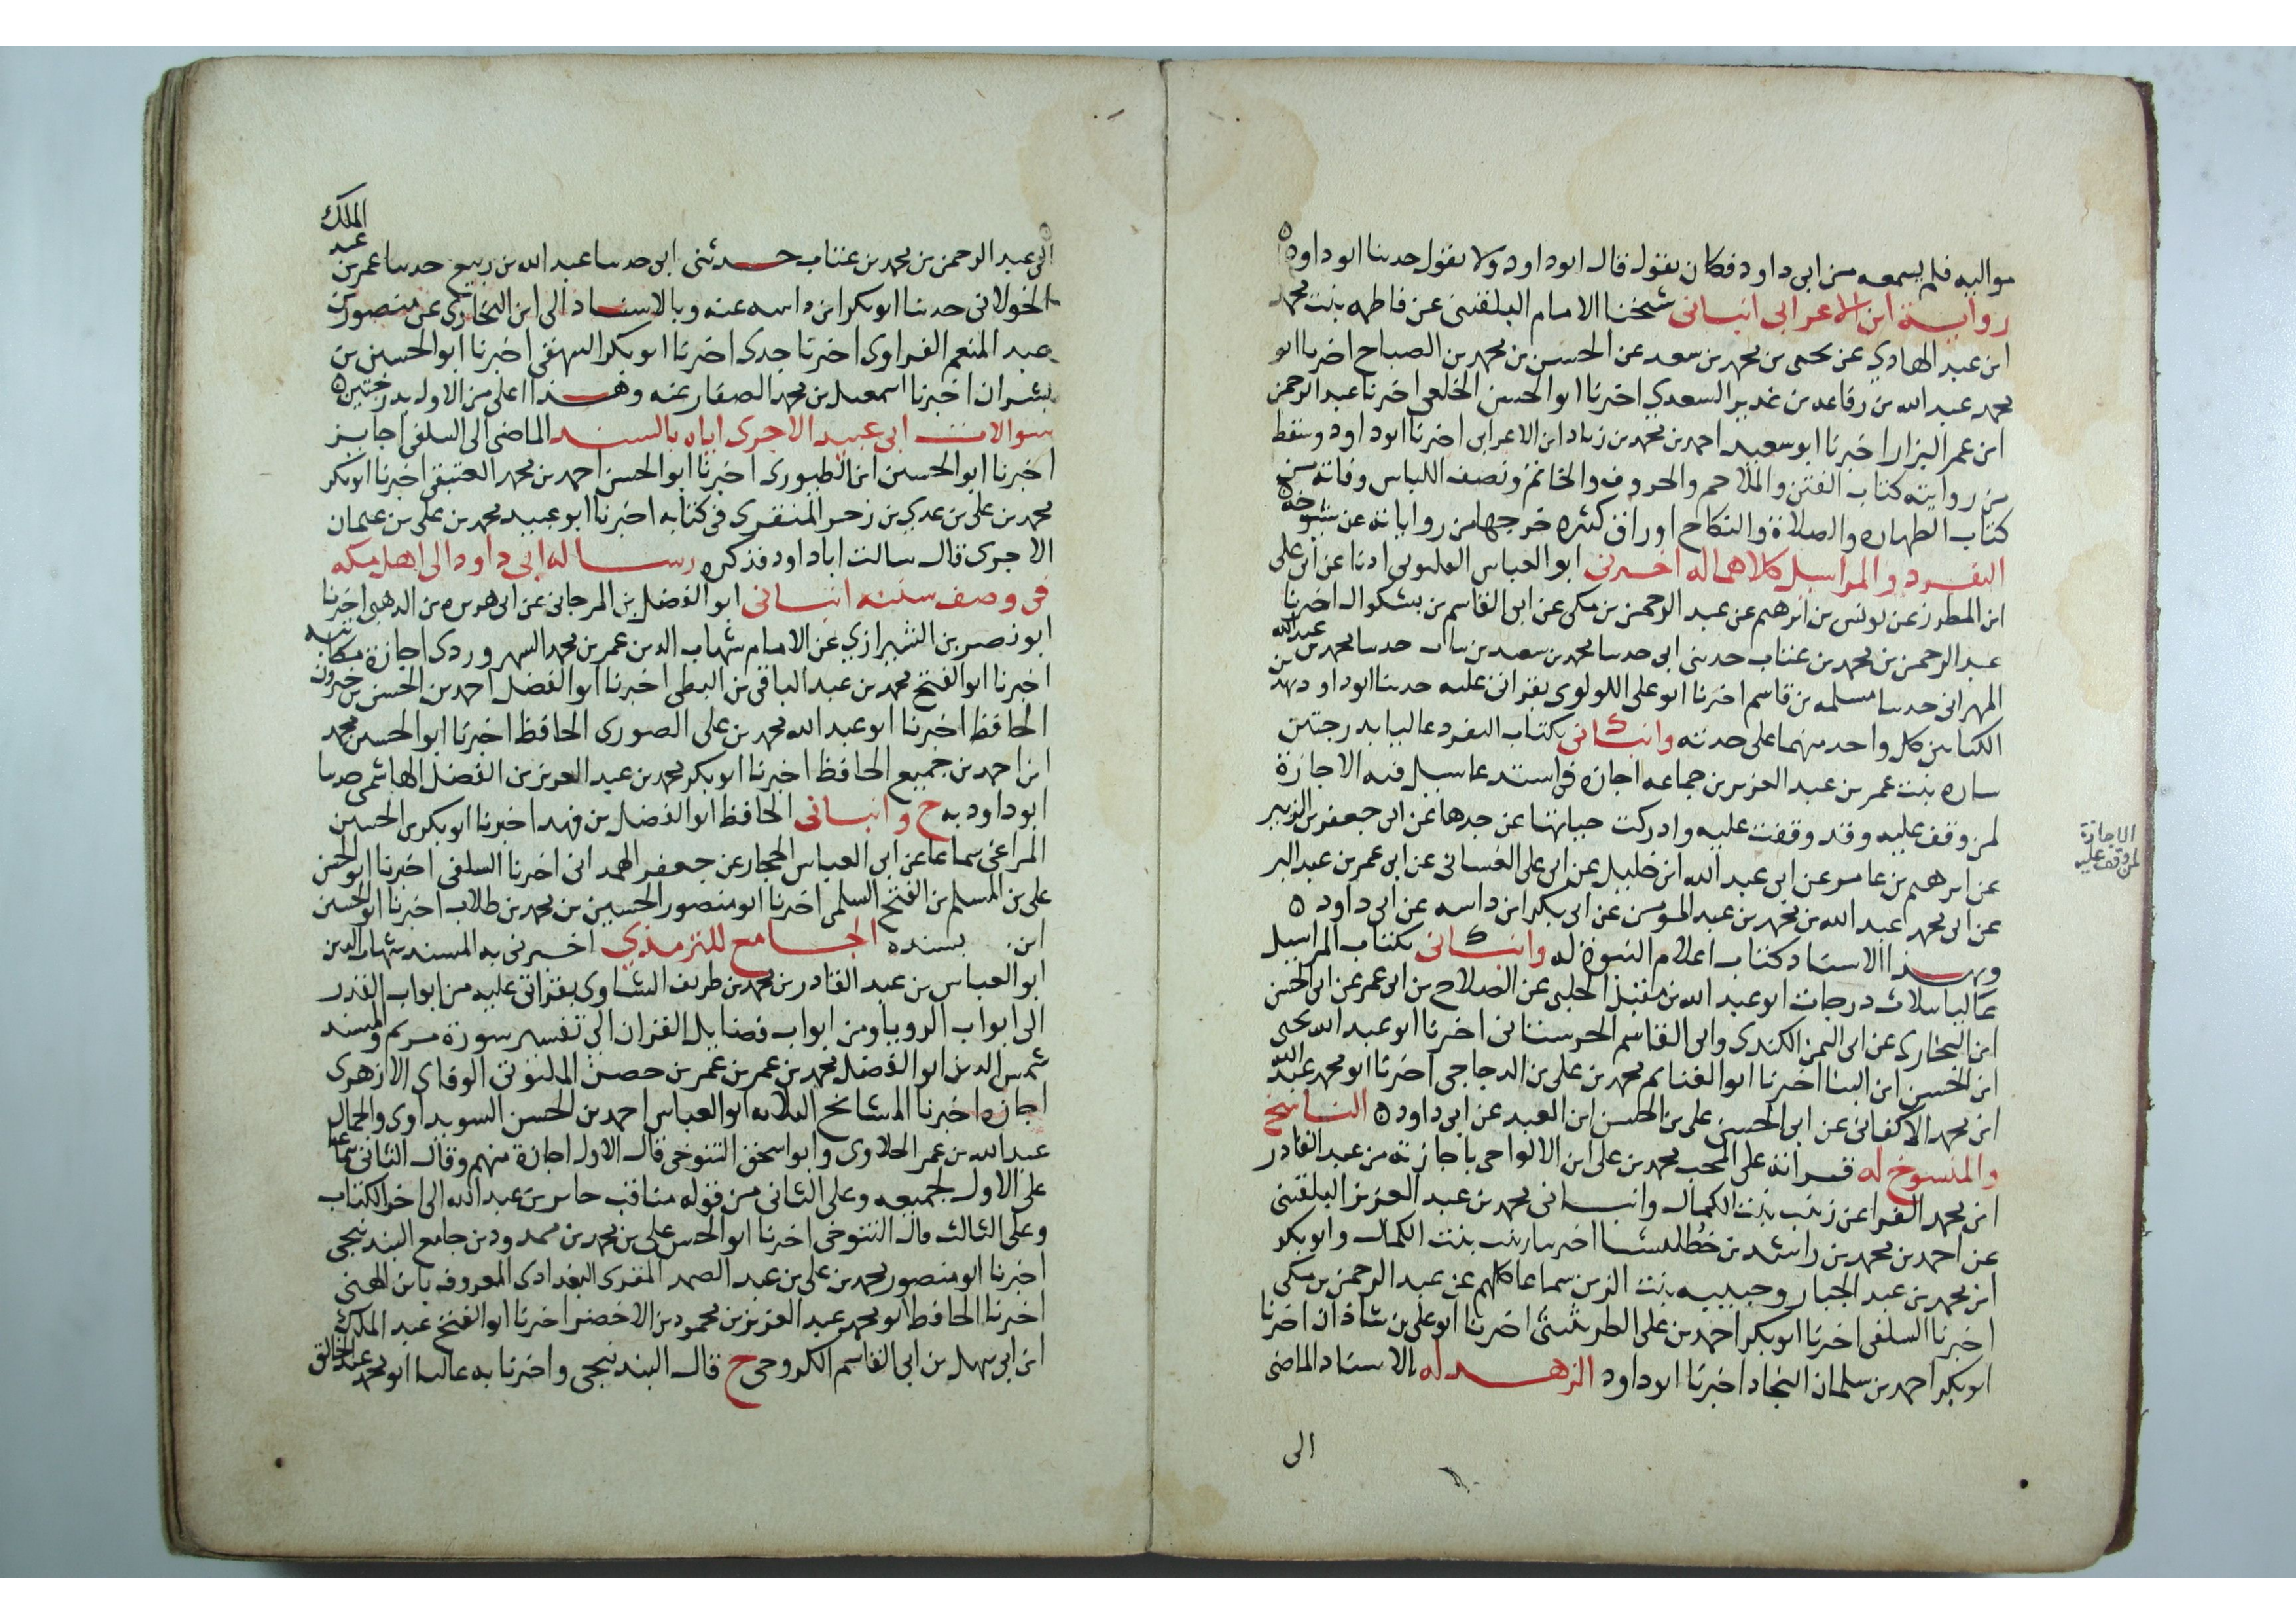 مواليه فلم يسمعه من ابى داود فكان يقول قال ابو داود ولا يقول حدثنا ابو داود ه
رواية ابن الاعرابى انبانى شيخنا الامام البلقينى عن فاطمه بنت محمد
ابن عبد الهادي عن يحيى بن محمد بن سعد عن الحسن بن محمد بن الصباح اخبرنا ابو
محمد عبد الله بن رفاعه بن غدير السعدي اخبرنا ابو الحسن الخلعى اخبرنا عبد الرحمن
ابن عمر البزار اخبرنا ابو سعيد احمد بن محمد بن زياد ابن الاعرابى اخبرنا ابو داود وسقط
من روايته كتاب الفتن والملاحم والحروف والخاتم ونصف اللباس وفاته من
كتاب الطهاره والصلاة والنكاح اوراق كثيره خرجها من رواياته عن شيوخه ه
التفرد والمراسيل كلاهما له اخبرنى ابو العباس اذنا عن ابى على
ابن المطرز عن يونس بن ابرهيم عن عبد الرحمن بن مكى عن ابى القاسم بن بشكوال اخبرنا
عبد الرحمن بن محمد بن عتاب حدثنى ابى حدثنا محمد بن سعيد بن نبات حدثنا محمد بن عبد الله
المهرانى حدثنا مسلمه بن قاسم اخبرنا ابو على اللولوى بقرانى عليه حدثنا ابو داود بهذين
الكتابين كل واحد منهما على حدته وانبانى بكتاب التفرد عاليا بدرجتين
ساره بنت عمر بن عبد العزيز بن جماعه اجازه فى استدعا سيل فيه الاجازة
لمن وقف عليه وقد وقفت عليه وادركت حياتها عن جدها عن ابى جعفر بن الزبير
عن ابرهيم بن عامر عن ابى عبد الله ابن خليل عن ابى على الغسانى عن ابى عمر بن عبد البر
عن ابى محمد عبد الله بن محمد بن عبد المومن عن ابى بكر ابن داسه عن ابى داود ه
وبهذا الاسناد كتاب اعلام النبوة له وانبانى بكتاب المراسيل
عاليا بثلاث درجات ابو عبد الله بن مقبل الحلبى عن الصلاح بن ابى عمر عن ابى الحسن
ابن البخارى عن ابى اليمن الكندى وابى القاسم الحرستانى اخبرنا ابو عبد الله يحيى
ابن الحسن ابن البنا اخبرنا ابو الغنايم محمد بن على بن الدجاجى اخبرنا ابو محمد عبد الله
ابن محمد الاكفانى عن ابى الحسين على بن الحسن ابن العبد عن ابى داود ه الناسخ
والمنسوخ له قراته على المحب محمد بن على ابن الالواحى باجازته من عبد القادر
ابن محمد الفرا عن زينب بنت الكمال وانبانى محمد بن عبد العزيز البلقينى
عن احمد بن محمد بن راشد بن خطليشا اخبرتنا زينب بنت الكمال وابو بكر
ابن محمد بن عبد الجبار وحبيبه بنت الزين سماعا كلهم عن عبد الرحمن بن مكى
اخبرنا السلفى اخبرنا ابو بكر احمد بن على الطريثيثى اخبرنا ابو على بن شاذان اخبرنا
ابو بكر احمد بن سلمان النجاد اخبرنا ابو داود الزهد له بالاسناد الماضى
الى
الاجازة
لمن وقف عليه
الى عبد الرحمن بن محمد بن عتاب حدثنى ابى حدثنا عبد الله بن ربيع حدثنا عمر بن عبد الملك
الخولانى حدثنا ابو بكر ابن داسه عنه وبالاسناد الى ابن البخارى عن منصور بن
عبد المنعم الفراوى اخبرنا جدى اخبرنا ابو بكر البيهقى اخبرنا ابو الحسين بن
بشران اخبرنا اسمعيل بن محمد الصفار عنه وهذا اعلى من الاول بدرجتين ه
سوالات ابى عبيد الاجرى اياه بالسند الماضى الى السلفى اجايز
اخبرنا ابو الحسين ابن الطيورى اخبرنا ابو الحسن احمد بن محمد العتيقى اخبرنا ابو بكر
محمد بن على بن عدي بن زحر المنقرى فى كتابه اخبرنا ابو عبيد محمد بن على بن عثمان
الاجرى قال سالت ابا داود فذكره رساله ابى داود الى اهل مكه
فى وصف سننه انبانى ابو الفضل بن المرجانى عن ابى هريره بن الذهبى اخبرنا
ابو نصر بن الشيرازي عن الامام شهاب الدين عمر بن محمد السهروردى اجازة مكاتبه
اخبرنا ابو الفتح محمد بن عبد الباقى بن البطى اخبرنا ابو الفضل احمد بن الحسن بن خيرون
الحافظ اخبرنا ابو عبد الله محمد بن على الصورى الحافظ اخبرنا ابو الحسين محمد
ابن احمد بن جميع الحافظ اخبرنا ابو بكر محمد بن عبد العزيز بن الفضل الهاشمى حدثنا
ابو داود به ح وانبانى الحافظ ابو الفضل بن فهد اخبرنا ابو بكر بن الحسين
المراغى سماعا عن ابى العباس الحجار عن جعفر الهمدانى اخبرنا السلفى اخبرنا ابو الحسن
على بن المسلم بن الفتح السلمى اخبرنا ابو منصور الحسين بن محمد بن طلاب اخبرنا ابو الحسين
ابن بسنده الجامع للترمذي اخبرنى به المسند شهاب الدين
ابو العباس بن عبد القادر بن محمد بن طريف الشاوى بقراتى عليه من ابواب القدر
الى ابواب الرويا ومن ابواب فضايل القران الى تفسير سورة مريم والمسند
شمس الدين ابو الفضل محمد بن عمر بن عمر بن حصن الملتوتى الوفاى الازهرى
اجازه اخبرنا المشايخ الثلاثه ابو العباس احمد بن الحسن السويداوى والجمال
عبد الله بن عمر الحلاوى وابو اسحق التنوخى قال الاول اجازة منهم وقال الثانى سماعا
على الاول لجميعه وعلى الثانى من قوله مناقب جابر بن عبد الله الى اخر الكتاب
وعلى الثالث قال التنوخى اخبرنا ابو الحسن على بن محمد بن ممدود بن جامع البندنيجى
اخبرنا ابو منصور محمد بن على بن عبد الصمد المقرى البغدادى المعروف بابن الهنى
اخبرنا الحافظ ابو محمد عبد العزيز بن محمود بن الاخضر اخبرنا ابو الفتح عبد الملك
ابن ابى سهل بن ابى القاسم الكروحى ح قال البندنيجى واخبرنا به عاليا ابو محمد عبد الخالق